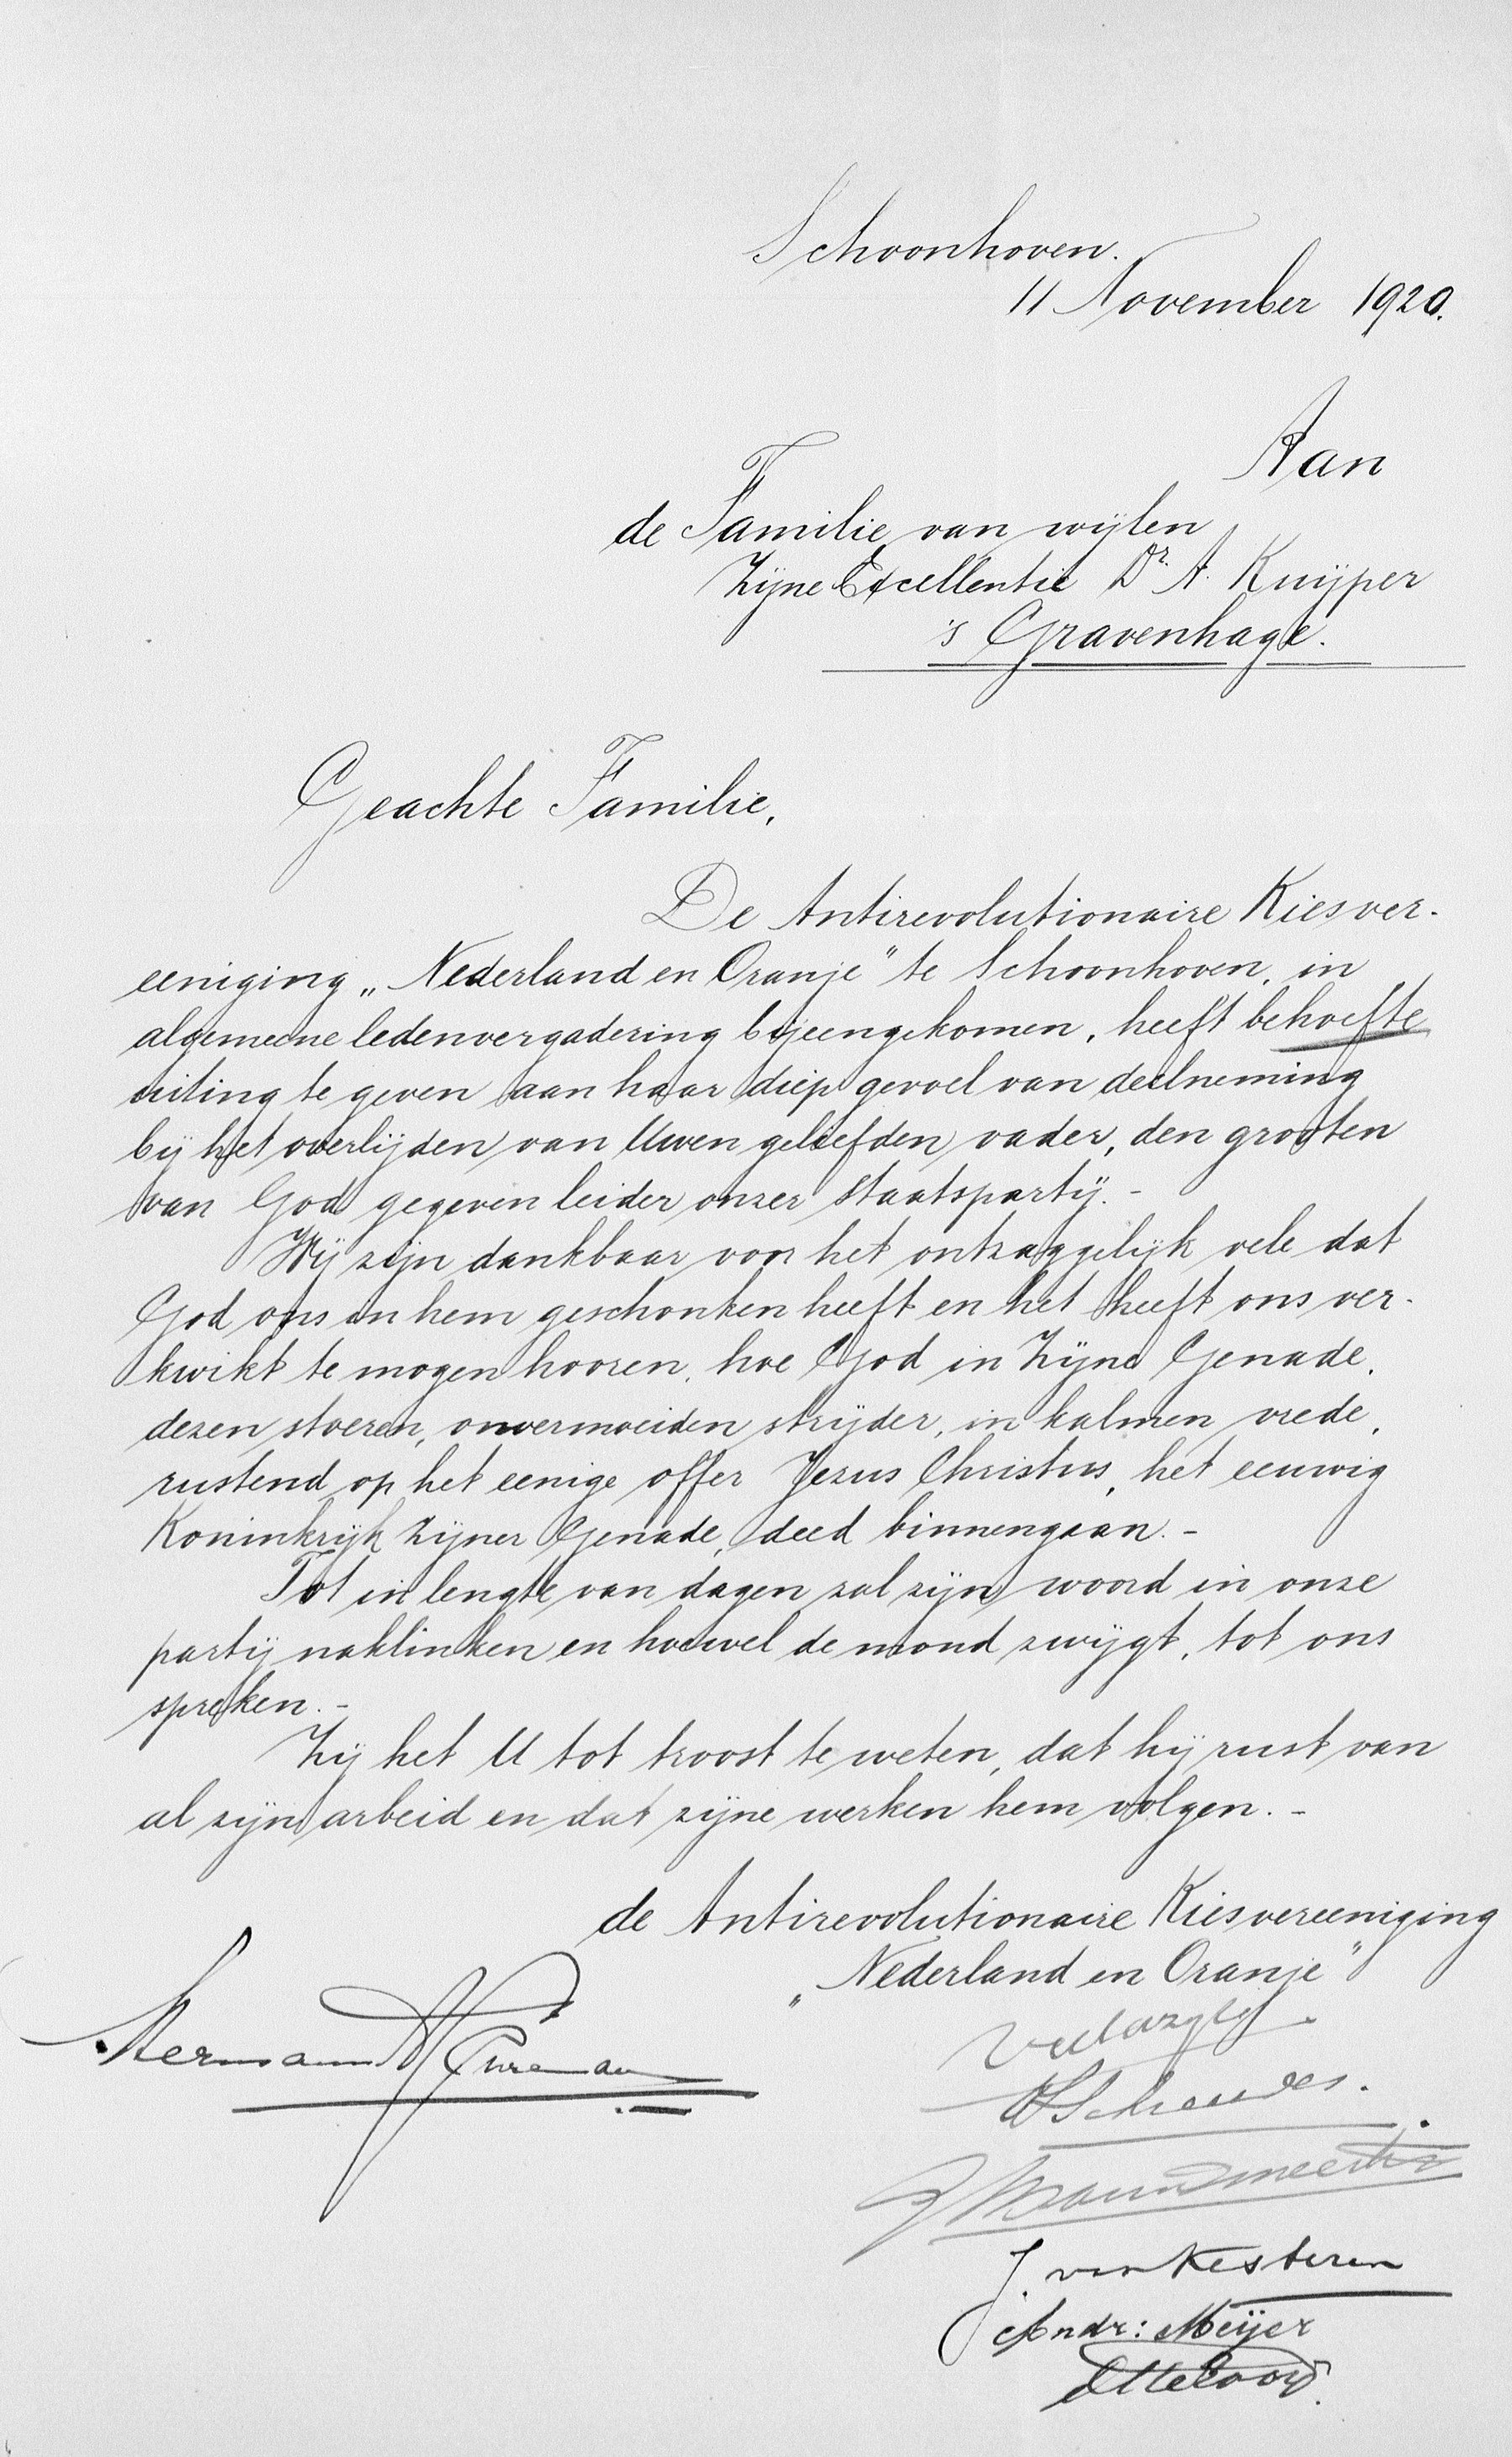 Schoonhoven.
11 November 1920.
Aan
de Familie van wijlen
Zijne Excellentie Dr. A. Kuijper
's Gravenhage.
Geachte Familie,
De Antirevolutionaire Kiesver-
eeniging „Nederland en Oranje" te Schoonhoven, in
algemeene ledenvergadering bijeengekomen, heeft behoefte
uiting te geven aan haar diep gevoel van deelneming
bij het overlijden van Uwen geliefden vader, den grooten
van God gegeven leider onzer staatspartij. -
Wij zijn dankbaar voor het ontzaggelijk vele dat
God ons in hem geschonken heeft en het heeft ons ver-
kwikt te mogen hooren, hoe God in Zijne Genade,
dezen stoeren, onvermoeiden strijder, in kalmen vrede,
rustend op het eenige offer Jezus Christus, het eeuwig
Koninkrijk Zijner Genade, deed binnengaan. -
Tot in lengte van dagen zal zijn woord in onze
partij naklinken en hoewel de mond zwijgt, tot ons
spreken. -
Zij het U tot troost te weten, dat hij rust van
al zijn arbeid en dat zijne werken hem volgen. -
de Antirevolutionaire Kiesvereeniging
„Nederland en Oranje"
Herman
J. van Kesteren
Andr: Meijer